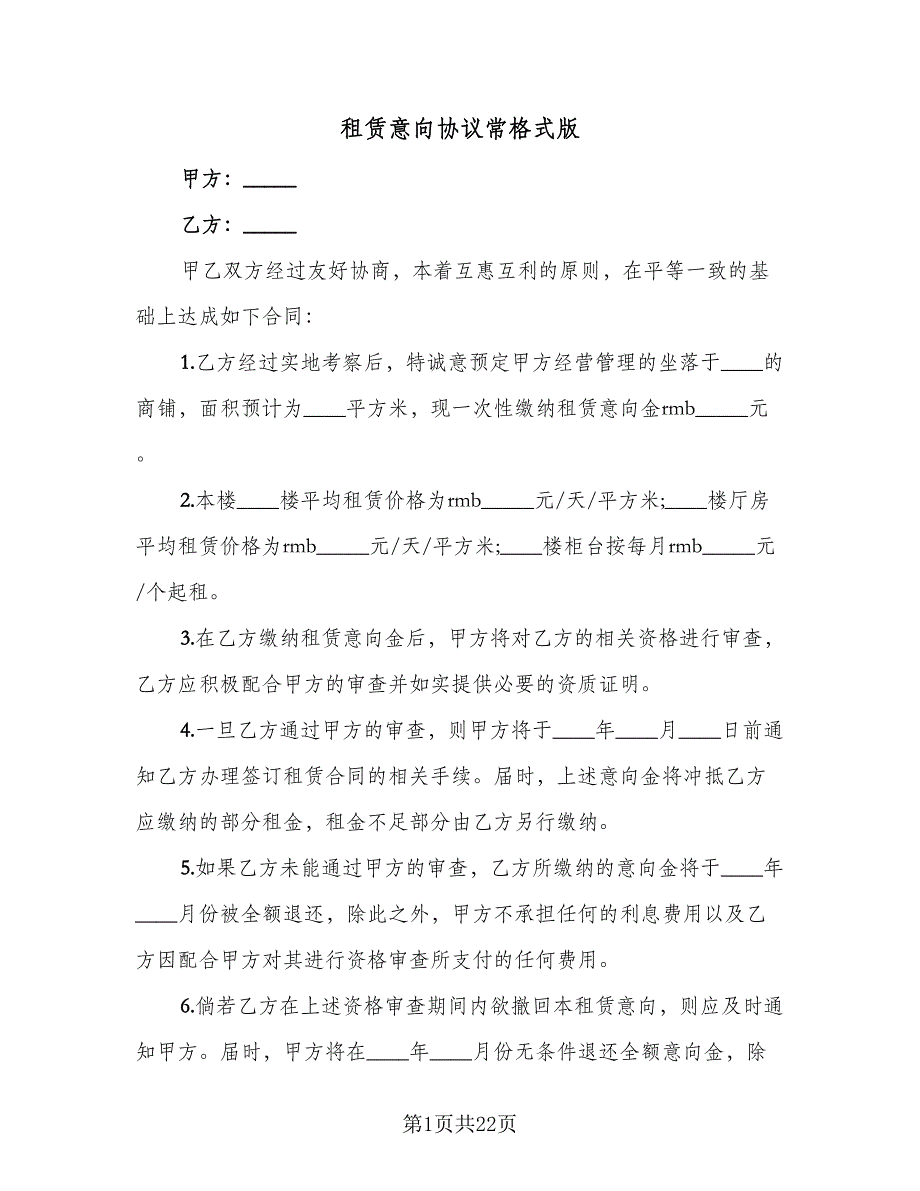 租赁意向协议常格式版
甲方：_____
乙方：_____
甲乙双方经过友好协商，本着互惠互利的原则，在平等一致的基
础上达成如下合同：
1.乙方经过实地考察后，特诚意预定甲方经营管理的坐落于____的
商铺，面积预计为____平方米，现一次性缴纳租赁意向金rmb_____元
。
2.本楼____楼平均租赁价格为rmb_____元/天/平方米;____楼厅房
平均租赁价格为rmb_____元/天/平方米;____楼柜台按每月rmb_____元
/个起租。
3.在乙方缴纳租赁意向金后，甲方将对乙方的相关资格进行审查，
乙方应积极配合甲方的审查并如实提供必要的资质证明。
4.一旦乙方通过甲方的审查，则甲方将于____年____月____日前通
知乙方办理签订租赁合同的相关手续。届时，上述意向金将冲抵乙方
应缴纳的部分租金，租金不足部分由乙方另行缴纳。
5.如果乙方未能通过甲方的审查，乙方所缴纳的意向金将于____年
____月份被全额退还，除此之外，甲方不承担任何的利息费用以及乙
方因配合甲方对其进行资格审查所支付的任何费用。
6.倘若乙方在上述资格审查期间内欲撤回本租赁意向，则应及时通
知甲方。届时，甲方将在____年____月份无条件退还全额意向金，除
第1页共22页